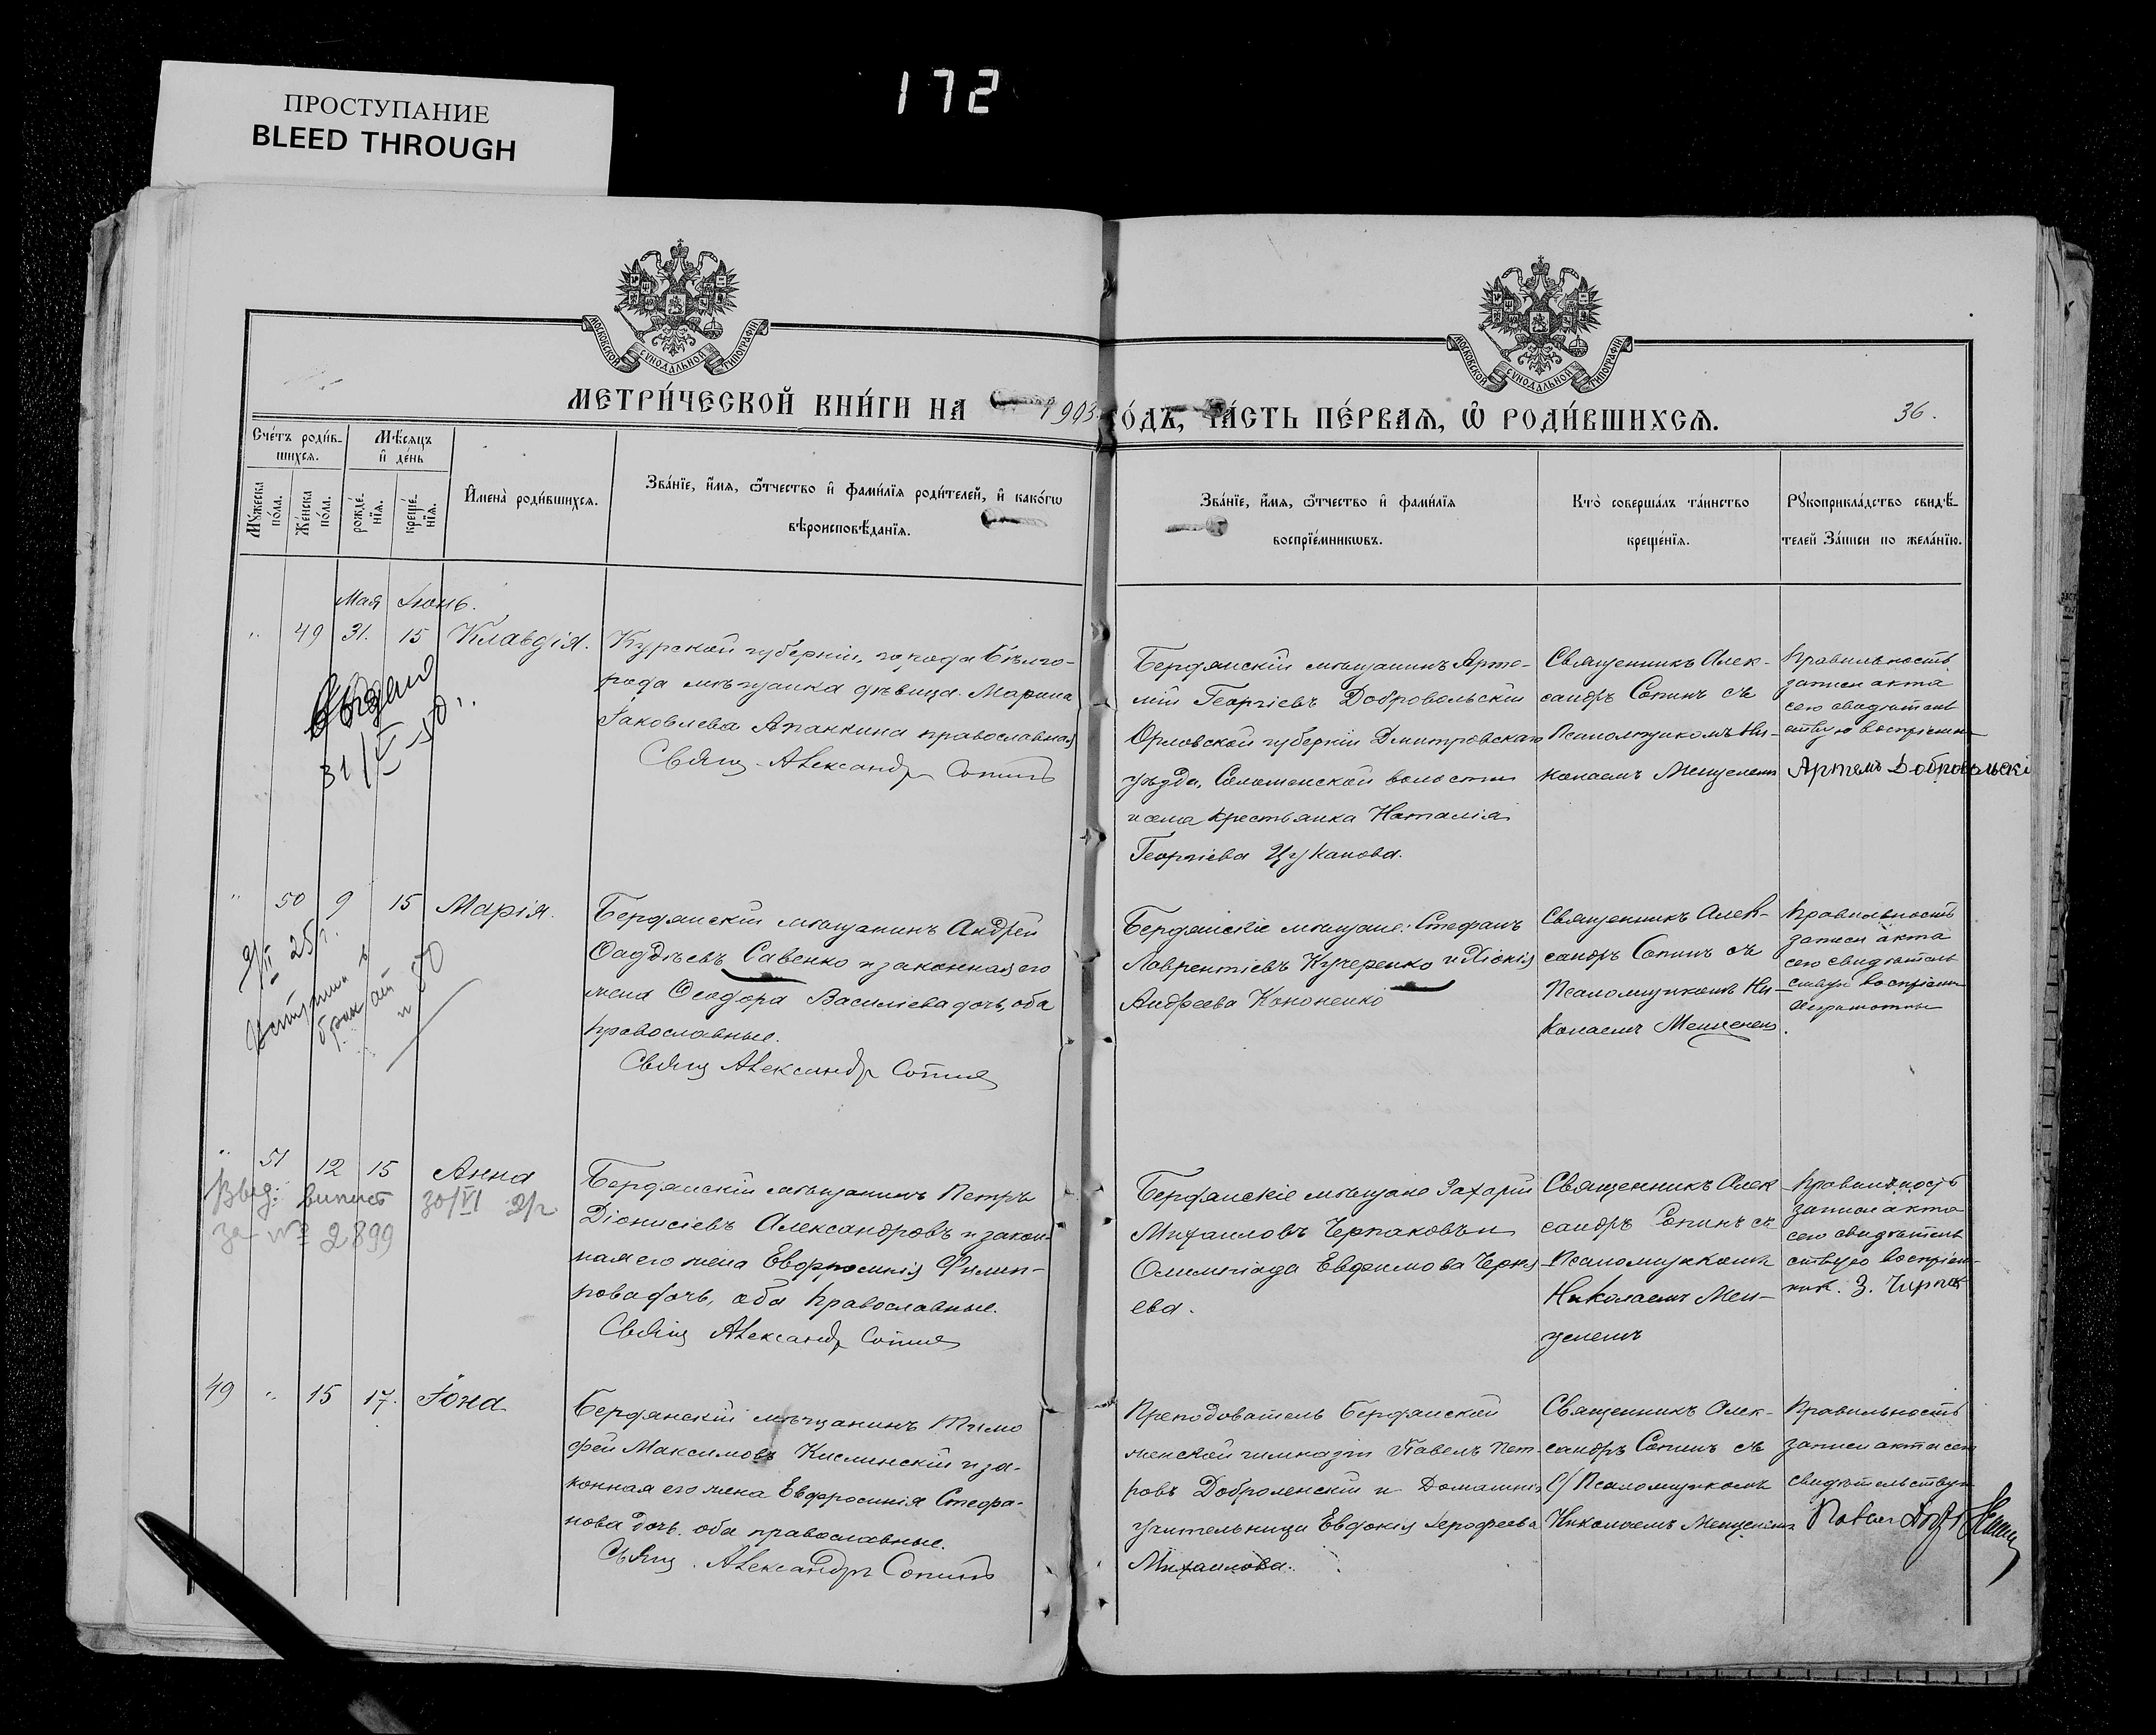 172
ПРОСТУПАНИЕ
BLEED THROUGH
МОСКОВСКОЙ СУНОДАЛЬНОЙ ТИПОГРАФІИ
МОСКОВСКОЙ СУНОДАЛЬНОЙ ТИПОГРАФІИ
МЕТРИ́ЧЕСКОЙ КНИ́ГИ НА 1903 О́ДЪ, ЧА́СТЬ ПЕ́РВАЯ, Ѡ РОДИ́ВШИХСЯ.
36.
Сче́тъ роди́в-
шихся.
Мѣ́сяцъ
и де́нь
Му́жеска
по́ла.
Же́нска
по́ла.
рожде́-
нїя.
креще́-
нїя.
Имена̀ роди́вшихся.
Зва́нїе, и́мя, ѻ́тчество и фами́лїя роди́телей, и како́гѡ
вѣроисповѣ́данїя.
Зва́нїе, и́мя, ѻ́тчество и фами́лїя
воспрїе́мникѡвъ.
Кто̀ соверша́лъ та́инство
креще́нїя.
Рꙋкоприкла́дство свидѣ́-
телей За́писи по жела́нїю.
Мая Іюнь.
" 49 31. 15 Клавдія.
Курской губерніи, города Бѣлго-
рода мѣщанка дѣвица Марина
Іаковлева Апанкина православная
Свящ. Александръ Сопинъ
Бердянскій мѣщанинъ Арте-
мій Георгіевъ Добровольскій
Орловской губерніи Дмитровскаго
уѣзда, Соломенской волости
крестьянка Наталія
Георгіева Цуканова.
Священникъ Алек-
сандръ Сопинъ съ
Псаломщикомъ Ни-
колаемъ Менцелемъ
Правильность
записи акта
сего свидѣтель
ствую воспріемн
Артемъ Добровольскі
31/V-50
" 50 9 15 Марія.
Бердянскій мѣщанинъ Андрей
Фаддѣевъ Савенко и законная его
жена Ѳеодора Васильева дочь, оба
православные.
Свящ Александръ Сопинъ
Бердянскіе мѣщане: Стефанъ
Лаврентіевъ Кучеренко и Хіонія
Андреева Кононенко
Священникъ Алек-
сандръ Сопинъ съ
Псаломщикомъ Ни-
колаемъ Менцелемъ
Правильность
записи акта
сего свидѣтель
ствую воспріемн
неграмотны
25 г.
" 51 12 15 Анна
30/VI 21 г
за № 2899
Бердянскій мѣщанинъ Петръ
Діонисіевъ Александровъ и закон-
ная его жена Евфросинія Филип-
пова дочь, оба православные.
Свящ Александръ Сопинъ
Бердянскіе мѣщане Захарій
Михаиловъ Черпаковъ и
Олимпіада Евфимова Черня
ева.
Священникъ Алек
сандръ Сопинъ съ
Псаломщикомъ
Николаемъ Мен-
целемъ
Правильность
записи акта
сего свидѣтель
ствую воспріем-
ник. З. Чирпак
49 " 15 17. Іона
Бердянскій мѣщанинъ Тимо
фей Максимовъ Кислинскій и за-
конная его жена Евфросинія Стефа-
нова дочь. оба православные.
Свящ. Александръ Сопинъ
Преподаватель Бердянской
женской гимназіи Павелъ Пет-
ровъ Доброленскій и Домашняя
учительница Евдокія Іерофеева
Михаилова.
Священникъ Алек-
сандръ Сопинъ съ
Псаломщикомъ
Николаемъ Менцелемъ
Правильность
записи акта сего
свидѣтельствую
Павел